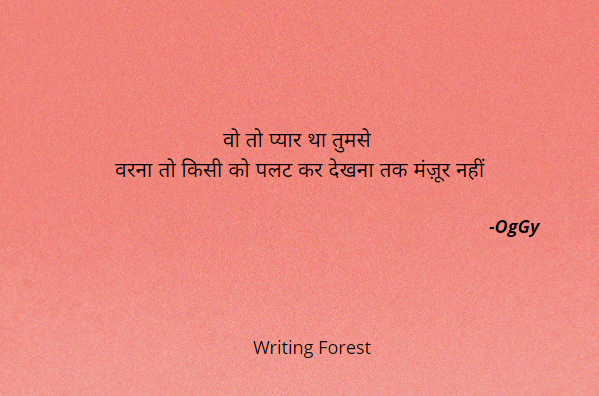 वो तो प्यार था तुमसे
वरना तो किसी को पलट कर देखना तक मंज़ूर नहीं
-OgGy
Writing Forest